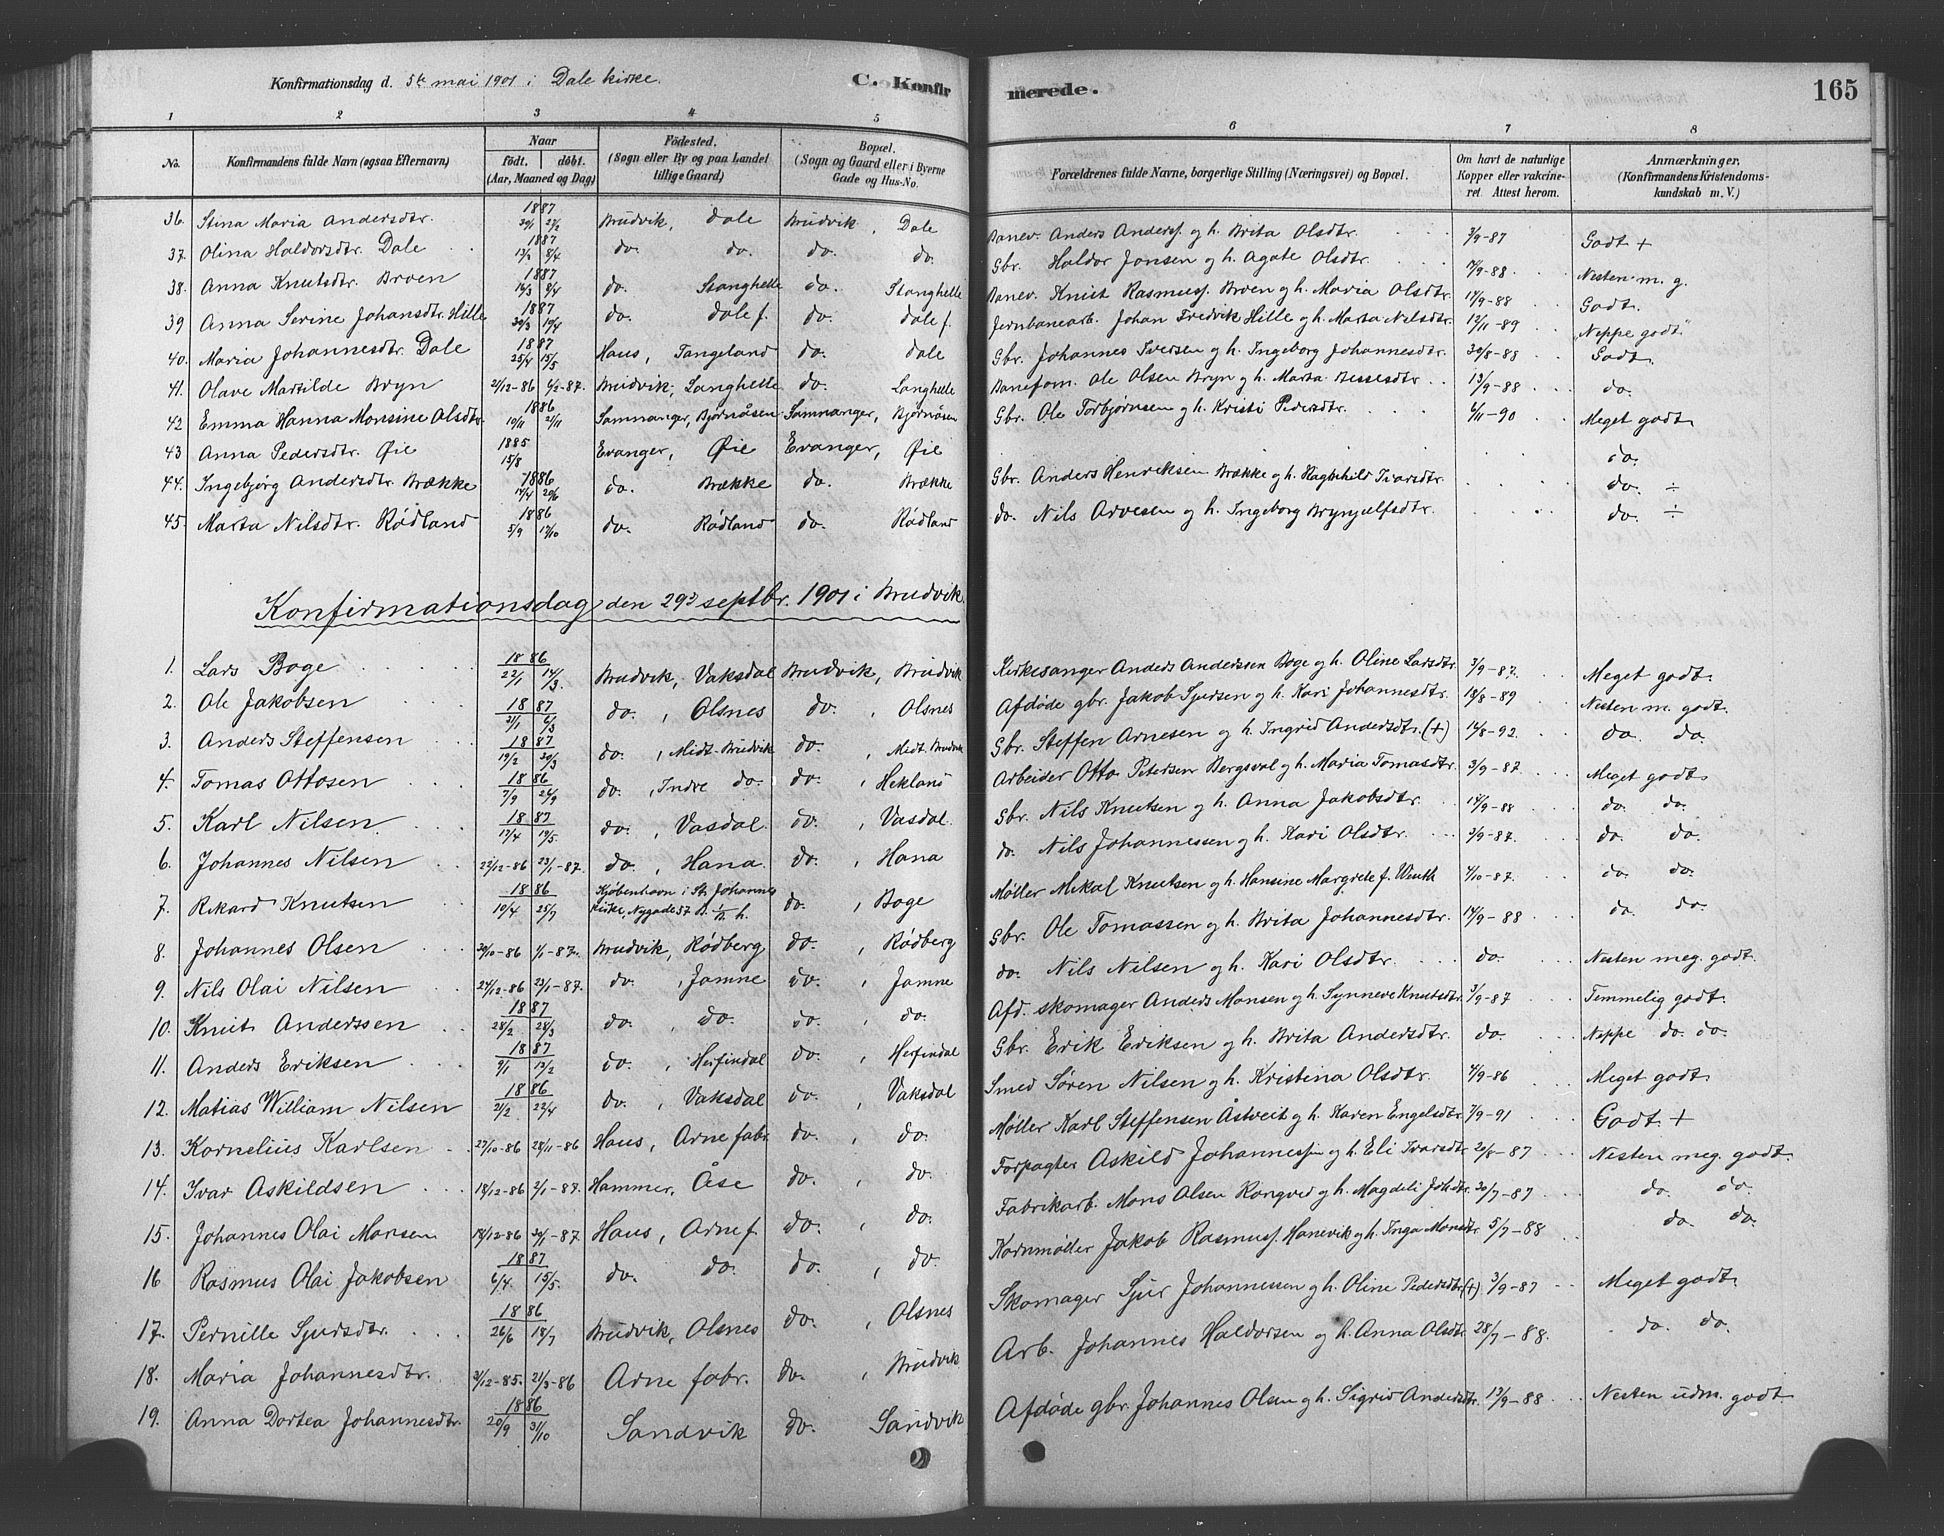 Konfirmationsdag d. 5te mai 1901 i Dale kirke. C. Konfirmerede. 165
1 2 3 4 5 6 7 8
No. Konfirmandens fulde Navn (ogsaa Efternavn) Naar født. døbt. (Aar, Maaned og Dag) Fødested. (Sogn eller By og paa Landet tillige Gaard) Bopæl. (Sogn og Gaard eller i Byerne Gade og Hus-No. Forældrenes fulde Navne, borgerlige Stilling (Næringsvei) og Bopæl. Om havt de naturlige Kopper eller vakcineret. Attest herom. Anmærkninger. (Konfirmandens Kristendomskundskab m. V.)
36. Stina Maria Andersdtr. 1887 30/1 27/2 Brudvik, Dale Brudvik, Dale Banev. Anders Anderss. og h. Brita Olsdtr. 3/9-87 Godt +
37. Olina Haldorsdtr. Dale 1887 8/4 do. do. do. do. Gbr. Haldor Jonsen og h. Agate Olsdtr. 14/9-88 Nesten m. g.
38. Anna Knutsdtr. Broen 1887 8/4 do. Stanghelle do. Stanghelle Banev. Knut Rasmuss. Broen og h. Maria Olsdtr. 14/9-88 Godt.
39 Anna Serine Johansdtr. Hille 1887 30/3 do. Dale f. do. Dale f. Jernbanearb. Johan Fredrik Hille og h. Marta Nilsdtr. 12/11-89 Neppe godt.
40. Maria Johannesdtr. Dale 1887 25/4 15/5 Haus, Tangeland do. Dale Gbr. Johannes Iversen og h. Ingeborg Johannesdtr. 30/8-88 Godt.
41. Olave Matilde Bryn 21/12-86 6/2-87. Brudvik, Langhelle do. Langhelle Baneform. Ole Olsen Bryn og h. Marta Bessesdtr. 13/9-88 do.
42 Emma Hanna Monsine Olsdtr. 1886 10/11 21/11 Samnanger, Bjørnåsen Samnanger, Bjørnåsen Gbr. Ole Torbjørnsen og h. Kristi Pedersdtr. 6/11-90 Meget godt
43 Anna Pedersdtr. Øie 1885 15/8 Evanger, Øie Evanger, Øie do.
44. Ingebjørg Andersdtr. Brække 1886 20/6 do. Brække do. Brække Gbr. Anders Henriksen Brække og h. Ragnhild Ivarsdtr. do. ÷
45. Marta Nilsdtr. Rødland 1886 5/9 17/10 do. Rødland do. Rødland do. Nils Arvesen og h. Ingeborg Brynjulfsdtr. do. ÷
Konfirmationsdag den 29d septbr. 1901 i Brudvik.
1. Lars Boge 1886 22/1 14/3. Brudvik, Vaksdal Brudvik, Brudvik Kirkesanger Anders Anderssen Boge og h. Oline Larsdtr. 3/9-87. Meget godt.
2. Ole Jakobsen 1887 21/1 6/3 do., Olsnes do., Olsnes Afdøde gbr. Jakob Sjursen og h. Kari Johannesdtr. 18/8-89 Nesten m. godt.
3. Anders Steffensen 1887 19/2 20/3 do., Midt-Brudvik do., Midt-Brudvik Gbr. Steffen Arnesen og h. Ingrid Andersdtr. (+) 14/8-92 do. do.
4. Tomas Ottosen 1886 7/9 26/9 do., Indre do. do., Heklanö Arbeider Otto Petersen Bergsvol og h. Maria Tomasdtr. 3/9-87. Meget godt
5. Karl Nilsen 1887 17/4 19/5. do., Vasdal. do., Vasdal Gbr. Nils Knutsen og h. Anna Jakobsdtr. 14/9-88 do. do.
6. Johannes Nilsen 22/12-86 23/1-87. do., Hana. do., Hana do. Nils Johannessen og h. Kari Olsdtr. 3/9-87. do. do.
7. Rikard Knutsen 1886 19/4 25/7 Kjøbenhavn i St. Johannes kirke, Nygade 37 do., Boge Møller Mikal Knutsen og h. Hansine Margrete f. Wenth 4/10-87. do. do.
8. Johannes Olsen 30/10-86 1/1-87. Brudvik, Rødberg do., Rødberg Gbr. Ole Tomassen og h. Brita Johannesdtr. 14/9-88 do. do.
9. Nils Olai Nilsen 24/12-86 23/1-87. do., Jamne do., Jamne do. Nils Nilsen og h. Kari Olsdtr. do. Nesten meg. godt.
10. Knut Anderssen 1887 28/2. 28/3 do., do. do., do. Afd. skomager Anders Monsen og h. Synneve Knutsdtr. 3/9-87 Temmelig godt.
11. Anders Eriksen 1887 9/1 13/2 do., Herfindal do., Herfindal Gbr. Erik Eriksen og h. Brita Andersdtr. do. Neppe do. do.
12. Matias William Nilsen 1886 21/2 22/4 do., Vaksdal do., Vaksdal Smed Søren Nilsen og h. Kristina Olsdtr. 4/9-86 Meget godt.
13. Kornelius Karlsen 27/10-86 28/11-86 Haus, Arne fabr. do., do. Møller Karl Steffensen Åstveit og h. Karen Engelsdtr. 7/9-91 Godt. +
14. Ivar Askildsen 18/12-86 2/1-87. Hammer, Åse do., do. Forpagter Askild Johannessen og h. Eli Ivarsdtr. 26/8-87 Nesten meg. godt.
15. Johannes Olai Monsen 18/12-86 30/1-87 Haus, Arne f. do., do. Fabrikarb. Mons Olsen Rongved og h. Magdeli Johsdtr. 30/7-87 do. do.
16 Rasmus Olai Jakobsen 1887 6/4. 15/5. do. do. do., do. Kornmøller Jakob Rasmuss. Hanevik og h. Inga Monsdtr. 5/7-88 do. do.
17. Pernille Sjursdtr. 1886 26/6 18/7 Brudvik, Olsnes do., Olsnes Skomager Sjur Johannessen og h. Oline Pedersdtr. (+) 3/9-87 Meget godt.
18. Maria Johannesdtr. 31/12-85. 21/3-86 Arne fabr. do., Brudvik Arb. Johannes Haldorsen og h. Anna Olsdtr. 28/7-88. do. do.
19. Anna Dortea Johannesdtr. 1886 20/9 31/10 Sandvik do. Sandvik Afdøde gbr. Johannes Olsen og h. Sigrid Andersdtr. 13/9-88 Nesten udm. godt